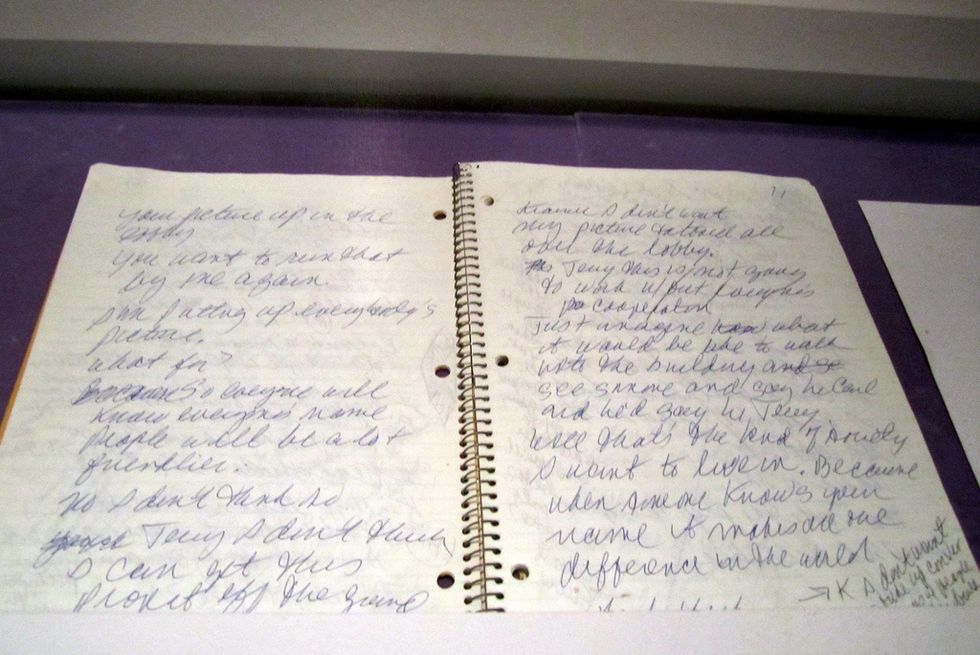 your picture up in the
lobby
you want to run that
by me again.
I'm putting up everybody's
picture.
what for?
So everyone will
know everyone's name
people will be a lot
friendlier.
No I don't think so
Jerry I don't think
I can get this
project off the ground
11
Kramer I don't want
my picture all
over the lobby.
Jerry this is not going
to work w/out everyones
cooperation
Just imagine what
it would be like to walk
into the building and
see someone and say hi Carl
and he'd say hi Jerry
Well that's the kind of society
I want to live in. Because
when someone knows your
name it makes all the
difference in the world
K I don't want